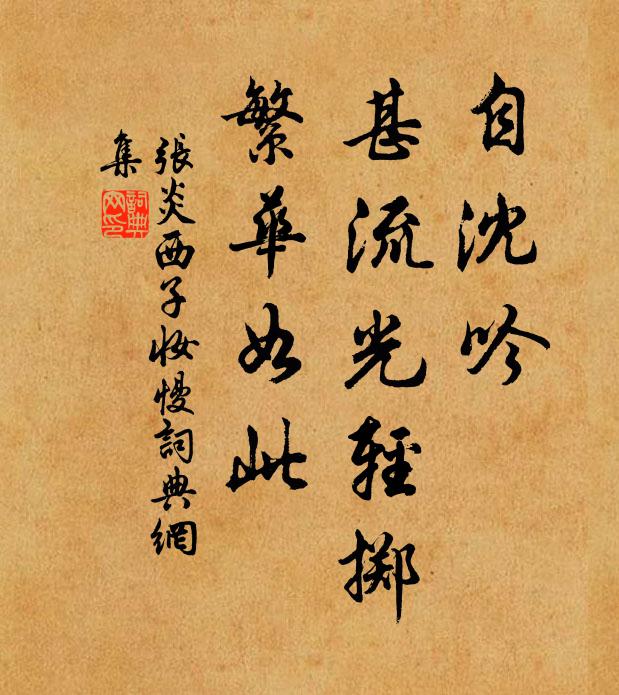 自沈吟
甚流光輕擲
繁華如此
張炎西子妝慢詞典網
集
詞典網印